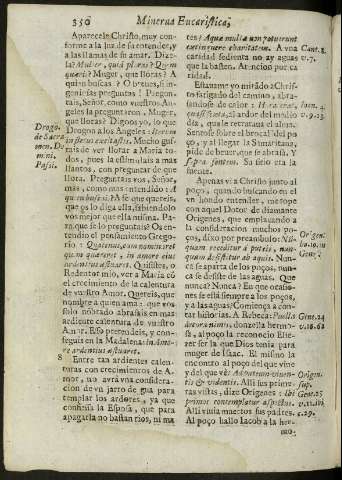 350 Minerva Eucaristica,
Aparecele Christo, muy con-
forme a la luz de su entender, y
a las llamas de su amar. Dize-
la? Mulier, quid ploras? Quem
quæris? Muger, que lloras? A
quien buscas? O Iesus, si in-
geniosas preguntas! Pregun-
tais, Señor, como vuestros An-
geles la preguntaron, Muger,
que lloras? Digno yo, lo que
Drogon a los Angeles:
Mucho gus-
tais de ver llorar a Maria to-
dos, pues la estimulais a mas
llantos, con preguntar de que
llora. Preguntais vos, Señor,
mas, como mas entendido: A
quien buscas? A fè que quereis,
que os lo diga ella, sabiendolo
vos mejor que ella misma. Pa-
ra que se lo preguntais? Os en-
tendió el pensamiento Grego-
rio: Quatenus, cum nominaret
quem quæreret, in amore eius
ardentius æstuaret. Quisistes, ò
Redentor mio, ver a Maria cō
el crecimiento de la calentura
de vuestro Amor. Quereis, que
nombre a quien ama: que vos
solo nōbrado abrasais en mas
ardiente calentura de vuestro
Amor. Esso pretendeis, y con-
seguis en la Madalena: in Amo-
re ardentius æstuaret.
8 Entre tan ardientes calen-
turas con crecimientos de A-
mor, no avrà vna considera-
cion de vn jarro de gua para
templar los ardores, ya que
confiessa la Esposa, que para
apagarla no bastan rios, ni ma-
Drogo.
de Sacra
men. Do
mini.
Pasii.
tes? Aquæ multæ non potuerunt
extinguere charitatem. A vna
caridad sedienta no ay aguas
que la basten. Atencion por ca-
ridad.
Estavame yo mirādo a Chris-
to fatigado del camino, abra-
sandose de calor: Hora erat,
quasi sexta, al ardor del medio
dia, que le retratava el alma.
Sentose sobre el brocal del po-
ço, y al llegar la Samaritana,
pide de beuer, que se abrasa, Y
supra fontem. Su sitio era la
fuente.
Apenas vi a Christo junto al
poço, quando buscando en el
vn hondo entender, me tope
con aquel Doctor de diamante
Origenes, que emplazando a
la consideracion muchos po-
ços, dixo por preambulo: Nun-
quam receditur à puteis, nun-
quam desistitur ab aquis. Nun-
ca se aparta de los poços, nun-
ca se desiste de las aguas. Que
nunca? Nunca? En que ocasio-
nes se està siempre a los poços,
y a las aguas? Comiença a con-
tar historias. A Rebeca: Puella
decora nimis, donzella hermo-
sa, al poço la reconocio Elie-
zer ser la que Dios tenia para
muger de Isaac. El mismo la
encontrò al poço del que viue
y del que vè: Ad puteum viuen-
tis & videntis. Alli fue primer
vistas, dize Origenes: Ibi
primos contemplatur aspectus.
Alli viuia muertos sus padres.
Al poço hallo Iacob a la her-
mo-
Cant. 8.
v. 7.
Ioan. 4.
v. 9. 13.
Origen.
ho. 10. in
Gene?
Gene. 24
v. 16. 62
Origen.
sup.
Gene. 25
v. 11. ibi
c. 29.